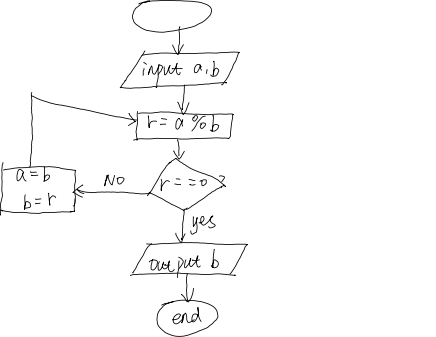 input a,b
r = a % b
r == 0 ?
NO
a = b
b = r
yes
output b
end